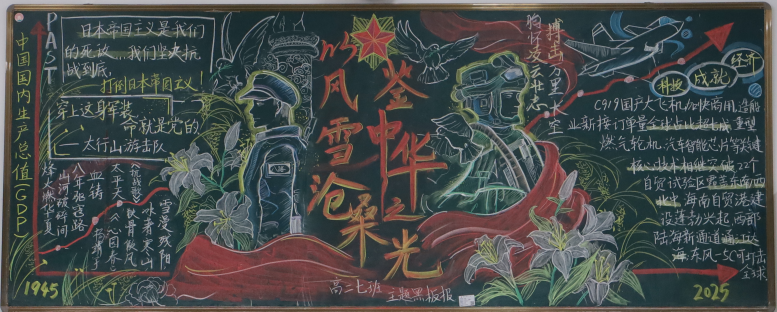 中国国内生产总值(GDP)
PAST
日本帝国主义是我们
的死敌，我们坚决抗
战到底，
打倒日本帝国主义！
穿上这身军装
命就是党的
——太行山游击队
烽火燃华夏
山河破碎间
八年驱寇路
血铸
太平天
《抗战感》
冰卷寒山
铁骨傲风
雪漫残阳
以风雪沧桑
鉴中华之光
胸怀凌云壮志
搏击万里长空
科技
成就
经济
C919国产大飞机加快商用，造船
业新接订单量全球占比超七成，重型
燃气轮机、汽车智能芯片等关键
核心技术相继突破，22个
自贸试验区覆盖东南西
北中，海南自贸港建
设蓬勃兴起，西部
陆海新通道通江达
海，东风-5C可打击
全球
1945
高二七班
主题黑板报
2025